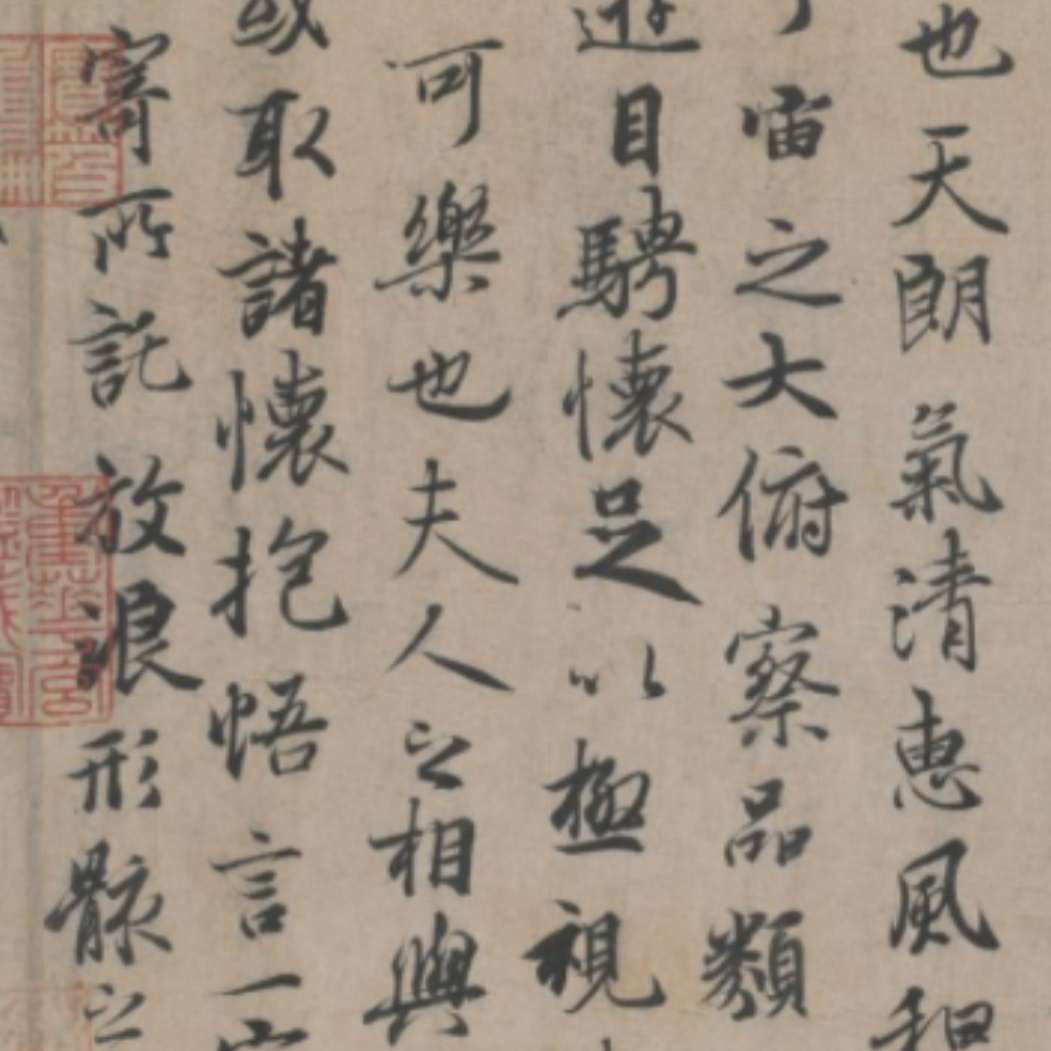 也天朗氣清惠風和
宙之大俯察品類
遊目騁懷足以極視
可樂也夫人之相與
或取諸懷抱悟言一室
寄所託放浪形骸之